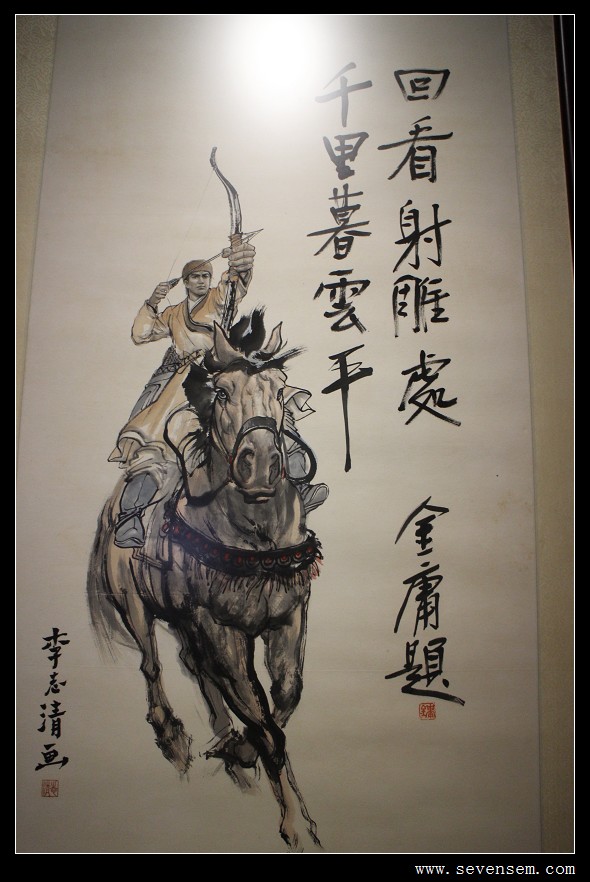 回看射雕處
千里暮雲平
金庸題
李志清画
www.sevensem.com